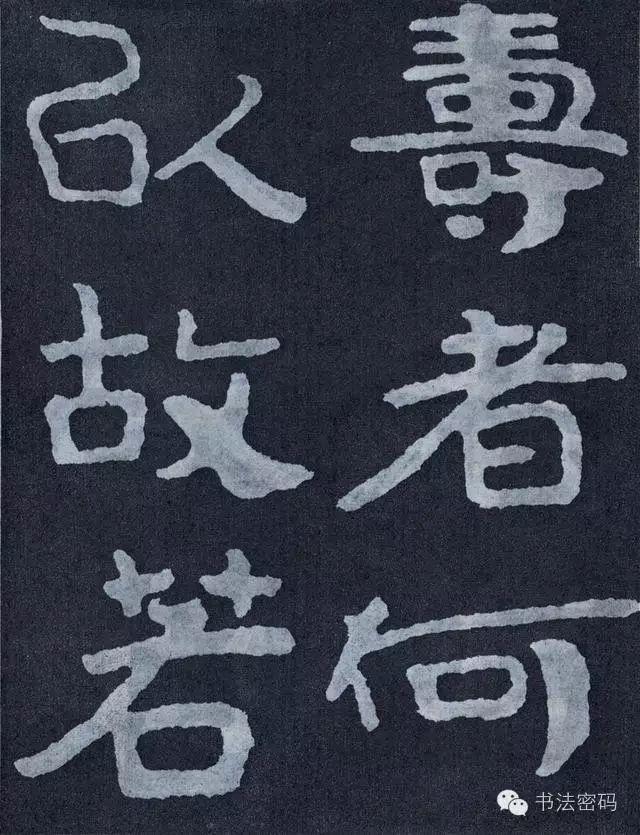 壽者何
以故若
书法密码